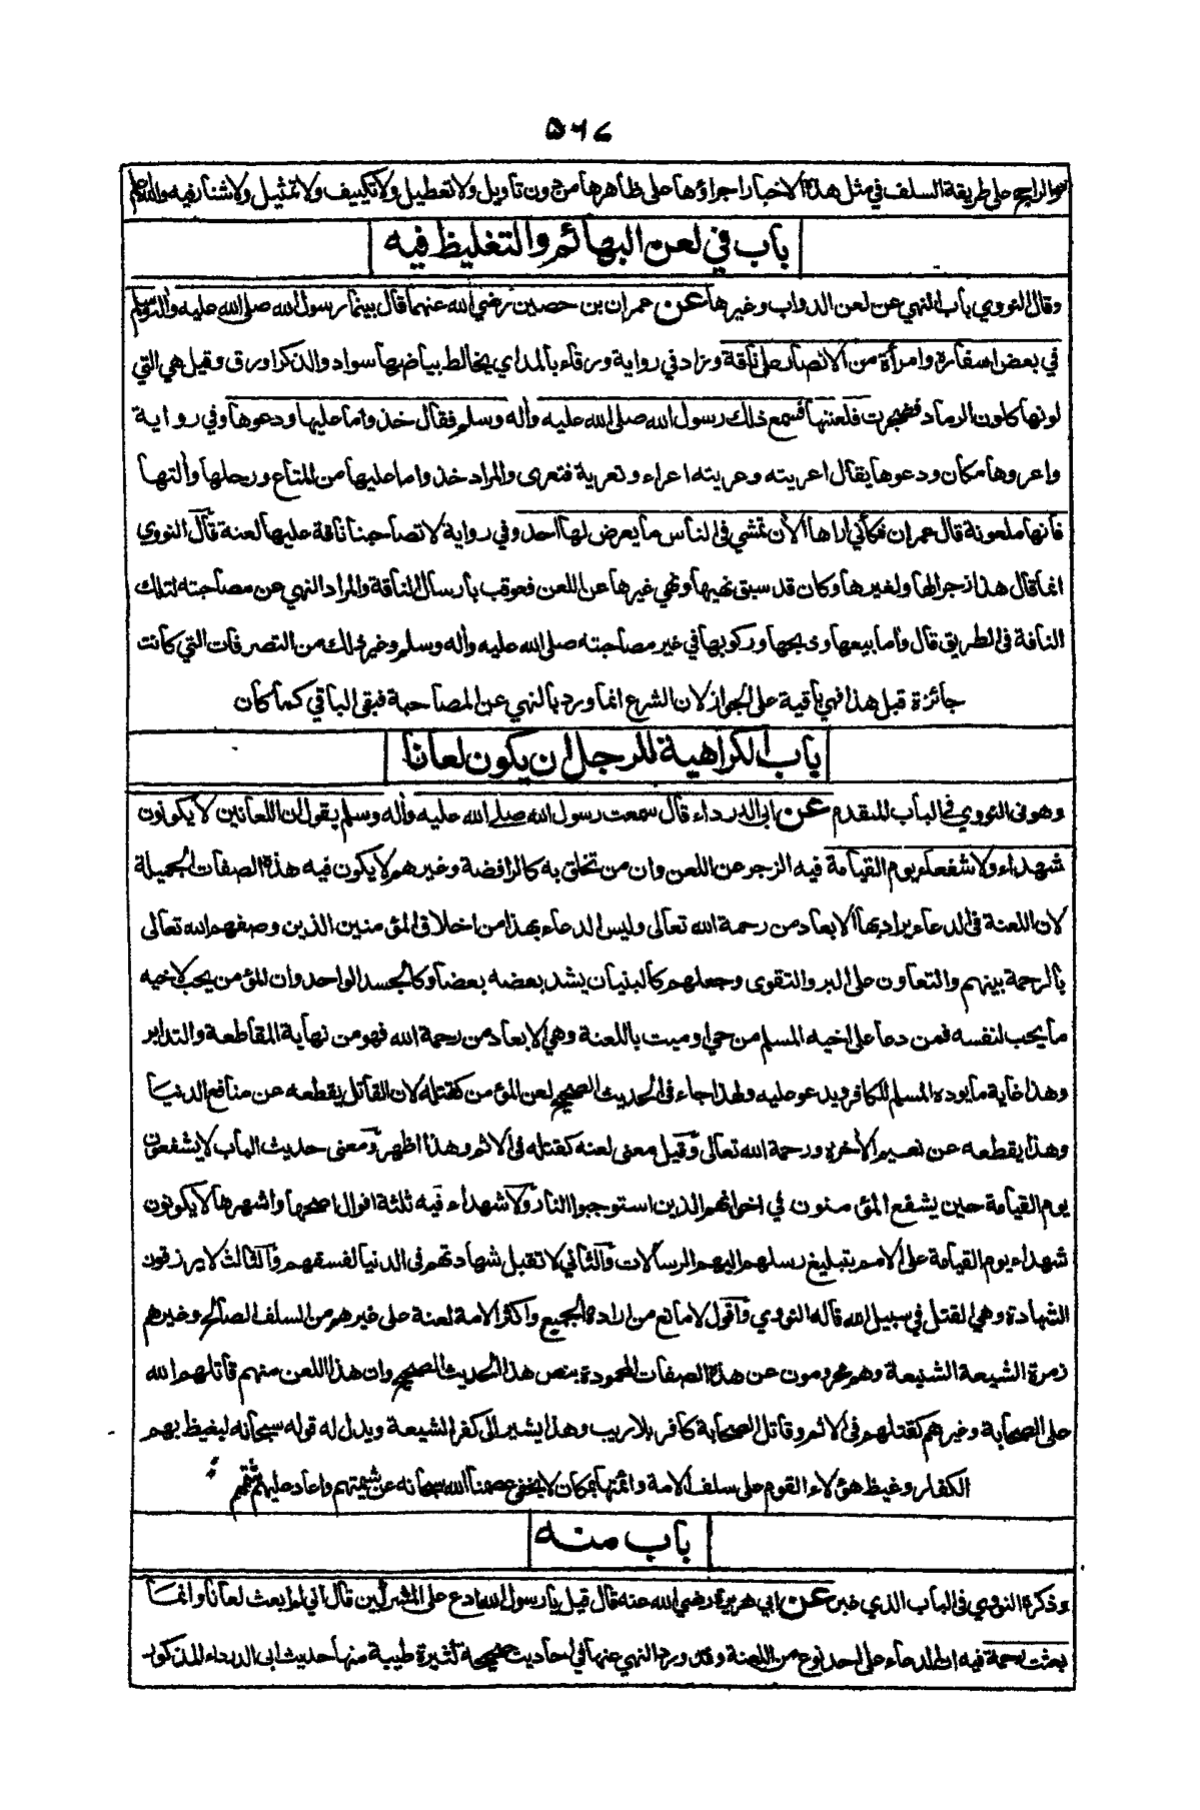 ٥٦٧
هو الراجح على طريقة السلف في مثل هذه الاخبار اجراؤها على ظاهرها من دون تاويل ولا تعطيل ولا تكييف ولا تمثيل ولا شنار فيه والله اعلم
باب في لعن البهائم والتغليظ فيه
وقال النووي باب النهي عن لعن الدواب وغيرها عن عمران بن حصين رضي الله عنهما قال بينما رسول الله صلى الله عليه واله وسلم
في بعض اسفاره وامرأة من الانصار على ناقة وزاد في رواية ورقاء بالمد اي يخالط بياضها سواد والذكر اورق وقيل هي التي
لونها كلون الرماد فضجرت فلعنتها فسمع ذلك رسول الله صلى الله عليه واله وسلم فقال خذوا ما عليها ودعوها وفي رواية
واعروها مكان ودعوها يقال اعريته وعريته اعراء وتعرية فتعرى والمراد خذوا ما عليها من المتاع ورحلها والتها
فانها ملعونة قال عمران فكأني اراها الان تمشي في الناس ما يعرض لها احد وفي رواية لا تصاحبنا ناقة عليها لعنة قال النووي
انما قال هذا زجرا لها ولغيرها وكان قد سبق نهيها ونهي غيرها عن اللعن فعوقب بارسال الناقة والمراد النهي عن مصاحبته لتلك
الناقة في الطريق قال واما بيعها وذبحها وركوبها في غير مصاحبته صلى الله عليه واله وسلم وغير ذلك من التصرفات التي كانت
جائزة قبل هذا فهي باقية على الجواز لان الشرع انما ورد بالنهي عن المصاحبة فبقي الباقي كما كان
باب الكراهية للرجل ان يكون لعانا
وهو في النووي في الباب المتقدم عن ابي الدرداء قال سمعت رسول الله صلى الله عليه واله وسلم يقول ان اللعانين لا يكونون
شهداء ولا شفعاء يوم القيامة فيه الزجر عن اللعن وان من تخلق به كالرافضة وغيرهم لا يكون فيه هذه الصفات الجميلة
لان اللعنة في الدعاء يراد بها الابعاد من رحمة الله تعالى وليس الدعاء بهذا من اخلاق المؤمنين الذين وصفهم الله تعالى
بالرحمة بينهم والتعاون على البر والتقوى وجعلهم كالبنيان يشد بعضه بعضا وكالجسد الواحد وان المؤمن يحب لاخيه
ما يحب لنفسه فمن دعا على اخيه المسلم من حي او ميت باللعنة وهي الابعاد من رحمة الله فهو من نهاية المقاطعة والتدابر
وهذا غاية ما يوده المسلم للكافر ويدعو عليه ولهذا جاء في الحديث الصحيح لعن المؤمن كقتله لان القاتل يقطعه عن منافع الدنيا
وهذا يقطعه عن نعيم الأخرة ورحمة الله تعالى وقيل معنى لعنه كقتله في الاثم وهذا اظهر ومعنى حديث الباب لا يشفعون
يوم القيامة حين يشفع المؤمنون في اخوانهم الذين استوجبوا النار ولا شهداء فيه ثلثة اقوال اصحها واشهرها لا يكونون
شهداء يوم القيامة على الامم بتبليغ رسلهم اليهم الرسالات والثاني لا تقبل شهادتهم في الدنيا لفسقهم والثالث لا يرزقون
الشهادة وهي القتل في سبيل الله قاله النووي واقول لا مانع من ارادة الجميع واكثر الامة لعنة على خيرهم من السلف الصالح وغيرهم
زمرة الشيعة الشيعة وهم محرومون عن هذه الصفات المحمودة بنص هذا الحديث الصحيح وان هذا اللعن منهم قاتلهم الله
على الصحابة وغيرهم كقتلهم في الاثم وقاتل الصحابة كافر بلا ريب وهذا يشير الى كفر الشيعة ويدل له قوله سبحانه ليغيظ بهم
الكفار وغيظ هؤلاء القوم على سلف الامة وائمتها بمكان لا يخفى عصمنا الله سبحانه عن شيمتهم واعاد عليهم
باب منه
وذكره النووي في الباب الذي غبر عن ابي هريرة رضي الله عنه قال قيل يا رسول الله ادع على المشركين قال اني لم ابعث لعانا وانما
بعثت رحمة فيه ان الدعاء على احد نوع من اللعنة وقد ورد النهي عنها في احاديث صحيحة كثيرة طيبة منها حديث ابي الدرداء المذكور